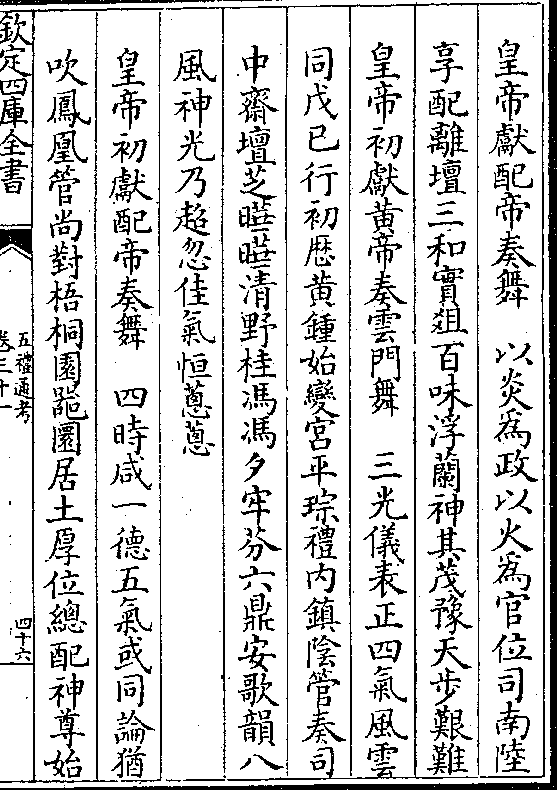 皇帝獻配帝奏舞　以炎為政以火為官位司南陸
享配離壇三和實俎百味浮蘭神其茂豫天步艱難
皇帝初獻黃帝奏雲門舞　三光儀表正四氣風雲
同戊已行初厯黄鍾始變宮平琮禮内鎮陰管奏司
中齋壇芝曄曄清野桂馮馮夕牢芬六鼎安歌韻八
風神光乃超忽佳氣恒蔥蔥
皇帝初獻配帝奏舞　四時咸一德五氣或同論猶
吹鳳凰管尚對梧桐園器圜居土厚位總配神尊始
欽定四庫全書
五禮通考
卷三十一
四十六